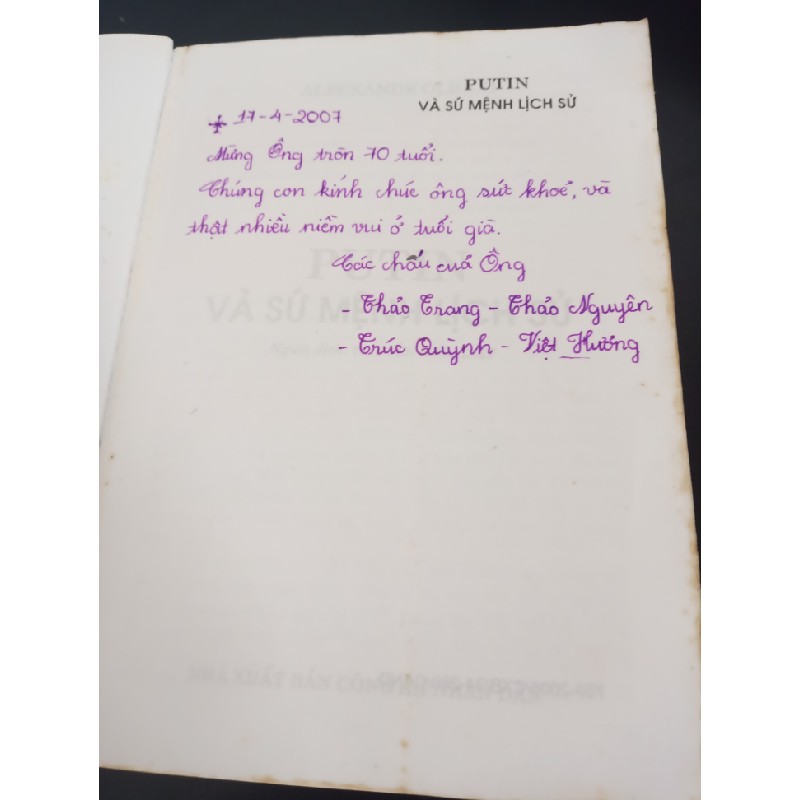 PUTIN
VÀ SỨ MỆNH LỊCH SỬ
17-4-2007
Mừng Ông tròn 70 tuổi.
Chúng con kính chúc ông sức khoẻ, và
thật nhiều niềm vui ở tuổi già.
Các cháu của Ông
- Thảo Trang - Thảo Nguyên
- Trúc Quỳnh - Việt Hương
PUTIN
VÀ SỨ MỆNH LỊCH SỬ